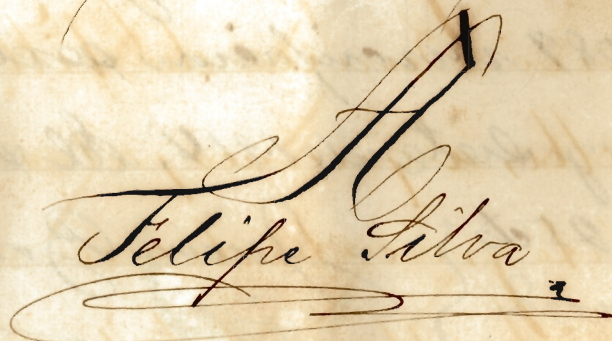 A
Felipe Silva